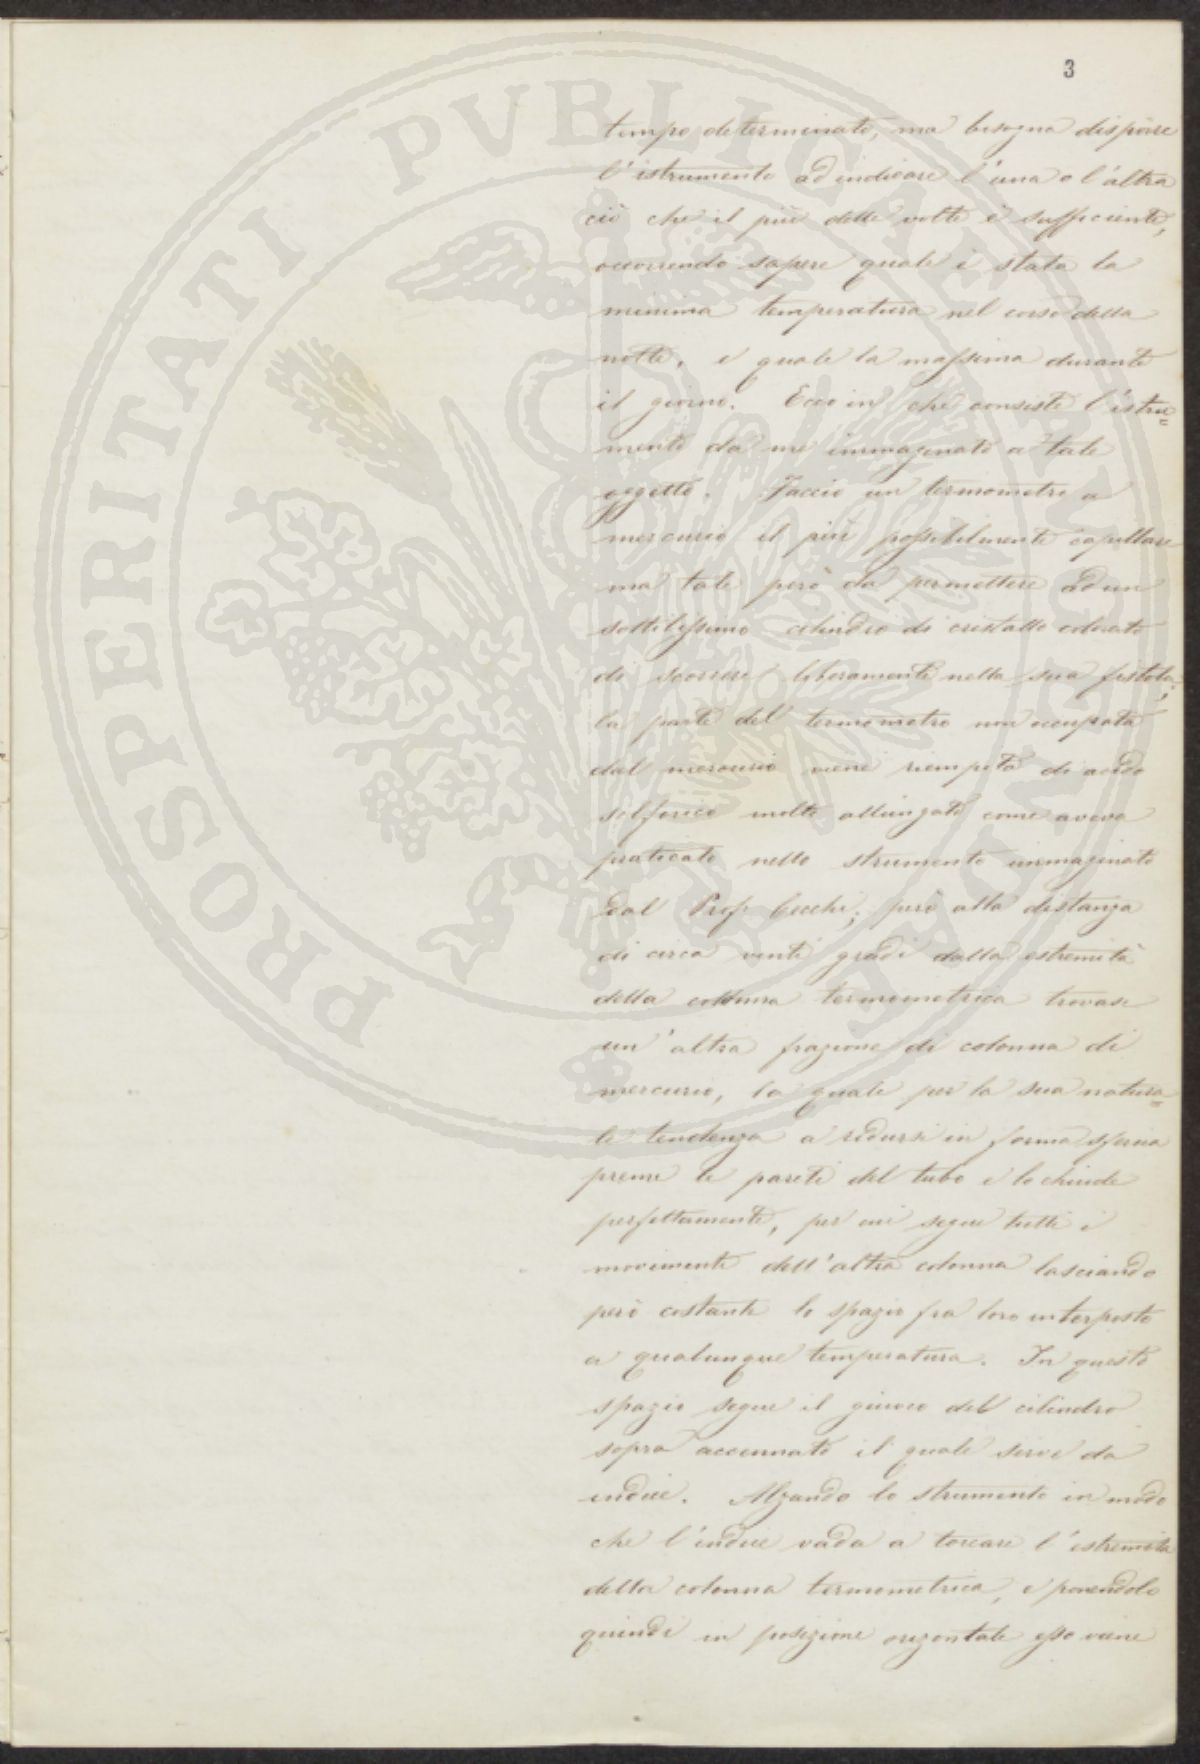 3
tempo determinato, ma bisogna disporre
l'istrumento ad indicare l'una o l'altra
ciò che il più delle volte è sufficiente,
occorrendo sapere quale è stata la
minima temperatura nel corso della
notte, e quale la massima durante
il giorno. Ecco in che consiste l'istru=
mento da me immaginato a tale
oggetto. Faccio un termometro a
mercurio il più possibilmente capillare
ma tale però da permettere ad un
sottilissimo cilindro di cristallo colorato
di scorrere liberamente nella sua fistola;
la parte del termometro non occupata
dal mercurio viene riempita di acido
solforico molto allungato come aveva
praticato nello strumento immaginato
dal Prof. Cecchi; però alla distanza
di circa venti gradi dalla estremità
della colonna termometrica trovasi
un'altra frazione di colonna di
mercurio, la quale per la sua natura=
le tendenza a ridursi in forma sferica
preme le pareti del tubo e lo chiude
perfettamente, per cui segue tutti i
movimenti dell'altra colonna lasciando
però costante lo spazio fra loro interposto
a qualunque temperatura. In questo
spazio segue il giuoco del cilindro
sopra accennato il quale serve da
indice. Alzando lo strumento in modo
che l'indice vada a toccare l'estremità
della colonna termometrica, e ponendolo
quindi in posizione orizontale esso viene
PROSPERITATI PVBLICAE